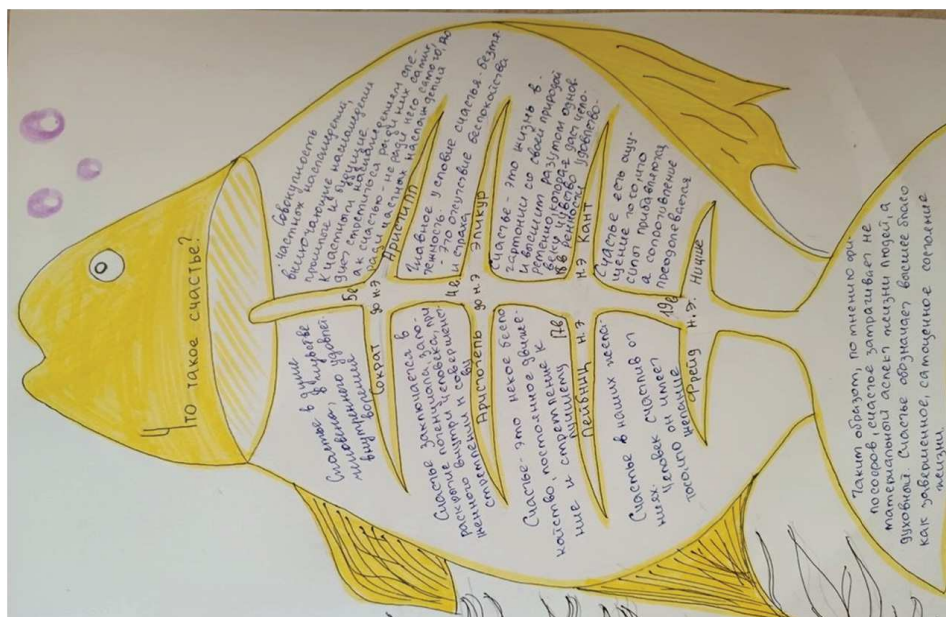 Что такое счастье?
Счастье в душе
человека, в чувстве
мгновенного удовлет-
внутреннего
ворения
5в
до н.э
Сократ
Совокупность
частных наслаждений,
включающие наслаждения
прошлые и будущие
К частным наслаждениям
дует стремиться ради них самих,
а к счастью - не ради него самого,
ради частных наслаждений
Аристипп
Счастье заключается в
раскрытие потенциала, зало-
женного внутри человека, при
стремлении к совершенст
ву
4в
до н.э
Аристотель
Главное условие счастья - безмя
тежность
- это отсутствие беспокойства
и страха
Эпикур
Счастье - это некое беспо
койство, постоянное движе-
ние и стремление к
лучшему
17в
н.э
Лейбниц
Счастье - это жизнь в
гармонии со своей природой
разумом однов
чувства
дает чело-
удовлетво-
18в
Кант
Счастье в наших жела-
ниях. Человек счастлив от
того, что он имеет
желание
19в
н.э.
Фрейд
Счастье есть ощу-
щение того, что
сила прибавляющ
а сопоротивление
преодолевается
Ницше
Таким образом, по мнению фи-
лософов, счастье затрагивает не
материальный аспект жизни людей, а
духовный. Счастье обозначает высшее благо
как завершенное, самоценное состояние
жизни.